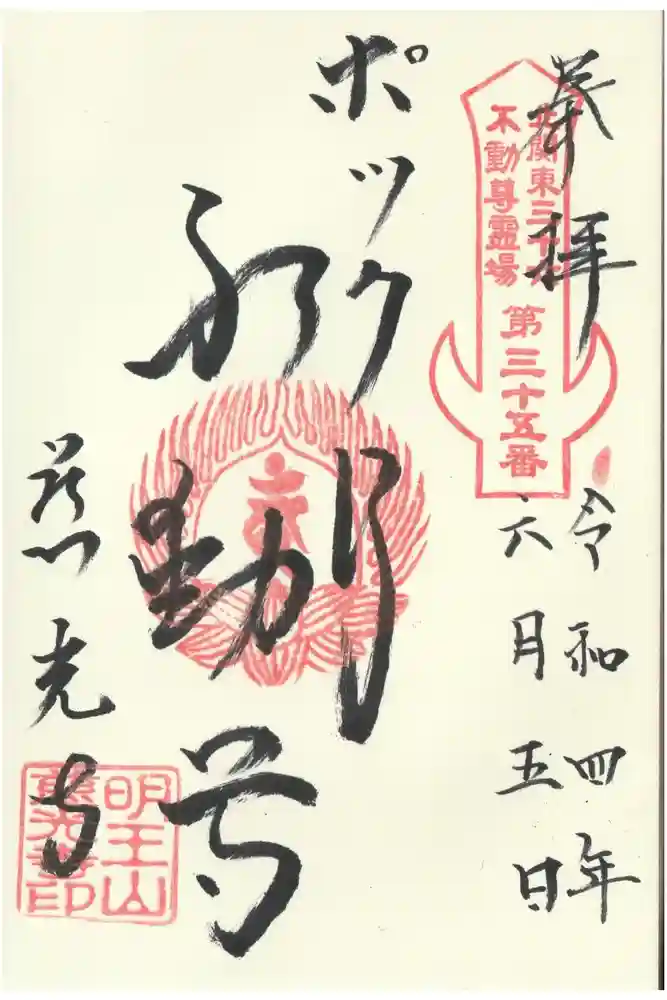 奉拝
北関東三十六
不動尊霊場
第三十五番
令和四年
六月五日
ポックリ
不動尊
慈光寺
明王山
慈光寺印